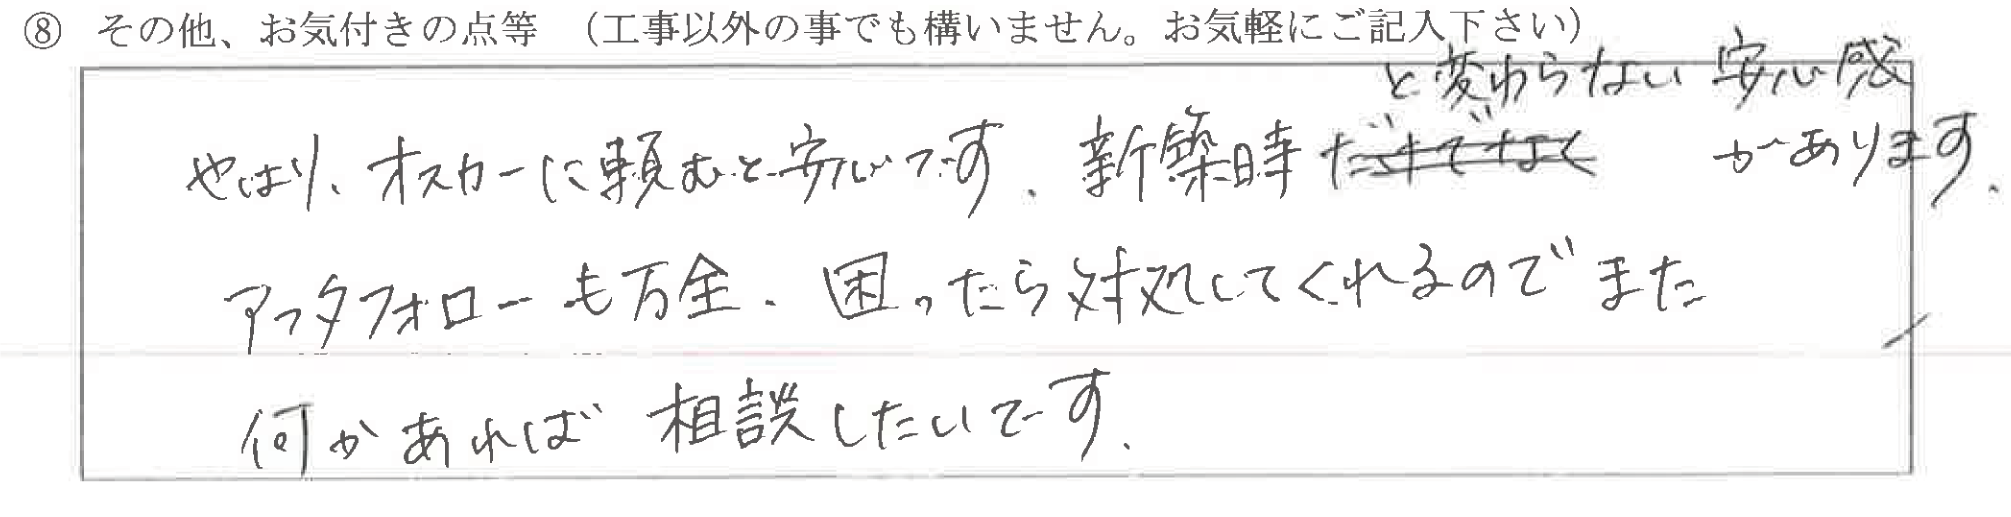 ⑧ その他、お気付きの点等 （工事以外の事でも構いません。お気軽にご記入下さい）
と変わらない 安心感
やはり、オスカーに頼むと安心です、新築時だけでなく があります、
アフタフォローも万全、困ったら対処してくれるのでまた
何かあれば 相談したいです、